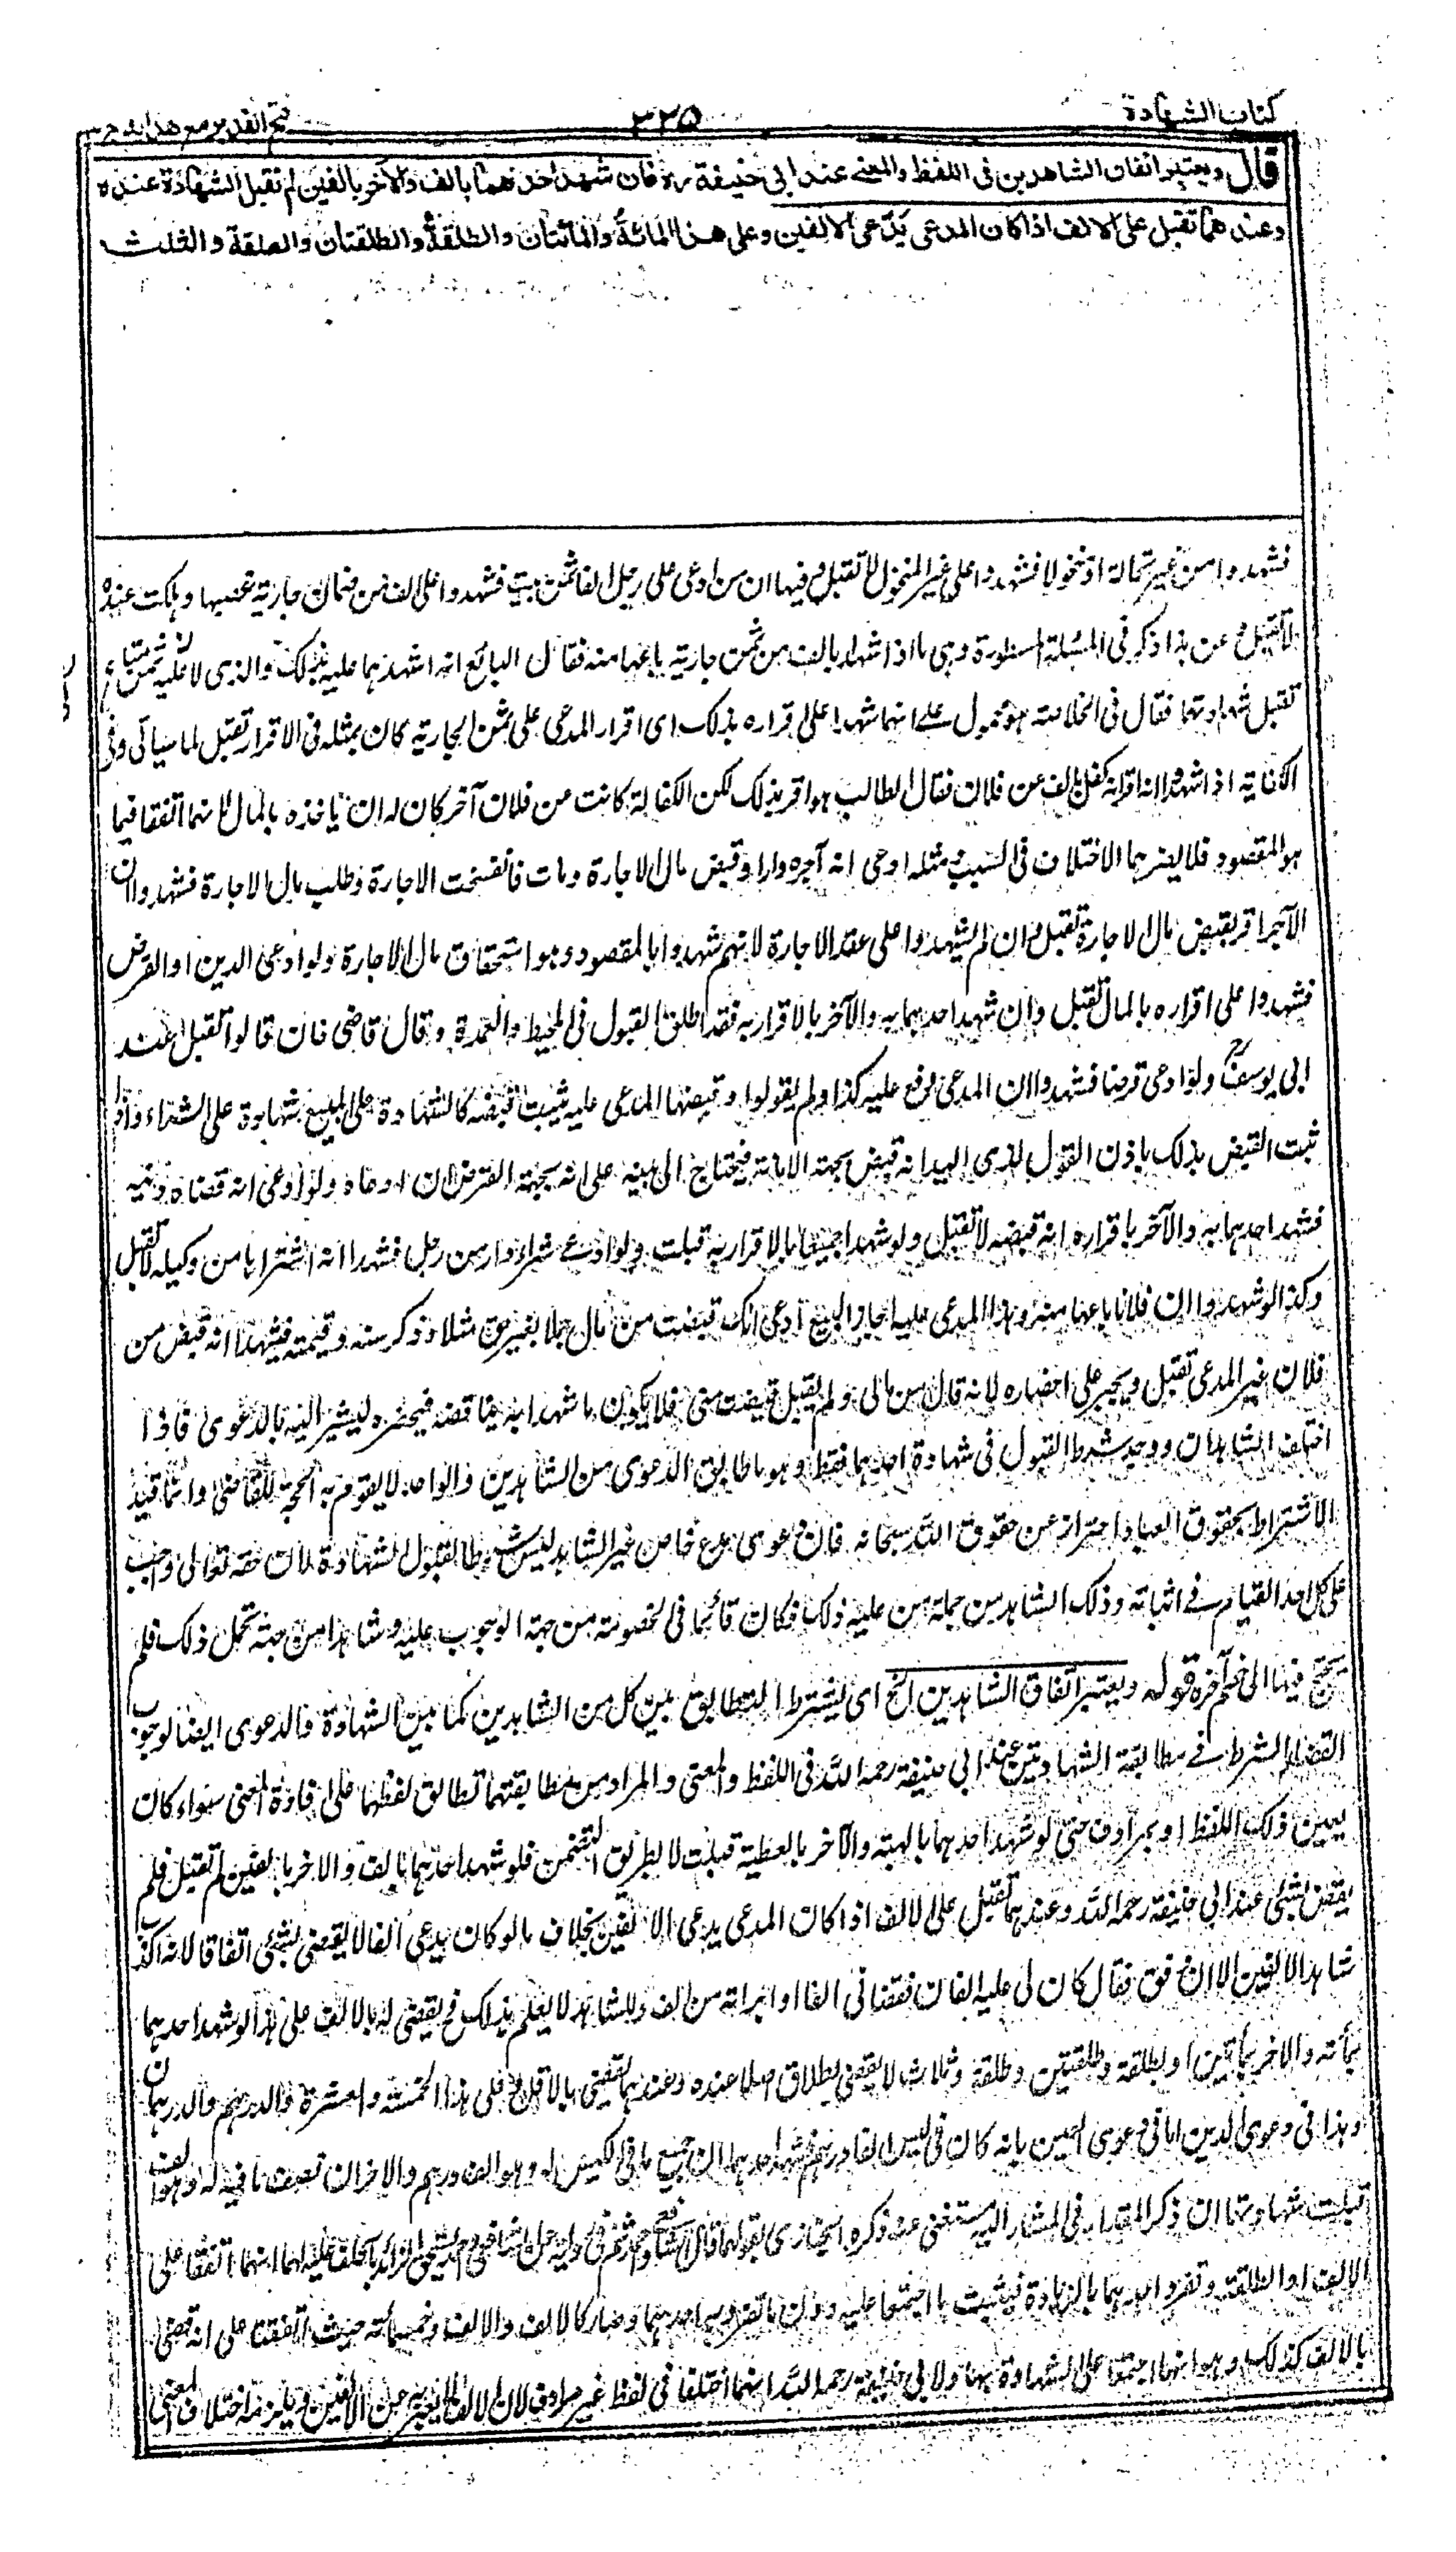 كتاب الشهادة
٣٢٥
فتح القدير مع هدايه ج ٣
قال ويعتبر اتفاق الشاهدين فى اللفظ والمعنى عند ابى حنيفة ره فان شهد احدهما بالف والآخر بالفين لم تقبل الشهادة عنده
وعندهما تقبل على الالف اذا كان المدعى يدّعى الالفين وعلى هذا المائة والمائتان والطلقة والطلقتان والطلقة والثلث
فشهدوا من غير نخالة او منخولا فشهدوا على غير المنخول لا تقبل وفيها ان من ادعى على رجل الفا ثمن بيت فشهدوا على الف من ضمان جارية غصبها وهلكت عنده
لا تقبل وعن هذا ذكر فى المسئلة المسطورة وهى ما اذا شهدا بالف من ثمن جارية باعها منه فقال البائع انه اشهدهما عليه بذلك والذى لى عليه ثمن متاع
تقبل شهادتهما فقال فى الخلاصة هو محمول على انهما شهدا على اقراره بذلك اى اقرار المدعى على ثمن الجارية كان بمثله فى الاقرار تقبل لما سيأتى وفى
الكفاية اذا شهدوا انه اقر انه كفل بالف عن فلان فقال الطالب هو اقر بذلك لكن الكفالة كانت عن فلان آخر كان له ان ياخذه بالمال لانهما اتفقا فيما
هو المقصود فلا يضرهما الاختلاف فى السبب ومثله ادعى انه آجره دارا وقبض مال الاجارة ومات فانفسخت الاجارة وطلب مال الاجارة فشهدوا ان
الآجر اقر بقبض مال الاجارة تقبل وان لم يشهدوا على عقد الاجارة لانهم شهدوا بالمقصود وهو استحقاق مال الاجارة ولو ادعى الدين او القرض
فشهدوا على اقراره بالمال تقبل وان شهد احدهما به والآخر بالاقرار به فقد اطلق القبول فى المحيط والعمدة وقال قاضى خان قالوا تقبل عند
ابى يوسف رح ولو ادعى قرضا فشهدوا ان المدعى دفع عليه كذا ولم يقولوا وقبضها المدعى عليه يثبت قبضه كالشهادة على البيع شهادة على الشراء واذا
ثبت القبض بذلك باذن القول لذى اليد انه قبض بجهة الامانة فيحتاج الى بينة على انه بجهة القرض ان ادعاه ولو ادعى انه قضاه دينه
فشهد احدهما به والآخر باقراره انه قبضه لا تقبل ولو شهدا جميعا بالاقرار به قبلت ولو ادعى شراء دار من رجل فشهدا انه اشتراها من وكيله لا تقبل
وكذا لو شهدوا ان فلانا باعها منه وهذا المدعى عليه اجاز البيع ادعى انك قبضت من مالى جملا بغير حق مثلا وذكر سنه وقيمته فشهدا انه قبض من
فلان غير المدعى تقبل ويجبر على احضاره لانه قال من مالى ولم يقل قبضت منى فلا يكون ما شهدا به يناقضه فيحضره ليشير اليه بالدعوى فاذا
اختلف الشاهدان ووجد شرط القبول فى شهادة احدهما فقط وهو ما طابق الدعوى من الشاهدين والواحد لا يقوم به الحجة للقاضى وانما قيد
الاشتراط بحقوق العباد احتراز عن حقوق الله سبحانه فان دعوى مدع خاص غير الشاهد ليس شرطا لقبول الشهادة لان حقه تعالى واجب
على كل احد القيام فى اثباته وذلك الشاهد من جملة من عليه ذلك فكان قائما فى الخصومة من جهة الوجوب عليه وشاهدا من جهة تحمل ذلك فلم
يحتج فيها الى خصم آخر قوله ويعتبر اتفاق الشاهدين الخ اى يشترط التطابق بين كل من الشاهدين كما بين الشهادة والدعوى ايضا لوجوب
القضاء الشرط فى مطابقة الشهادتين عند ابى حنيفة رحمه الله فى اللفظ والمعنى والمراد من مطابقتهما تطابق لفظهما على افادة المعنى سواء كان
بعين ذلك اللفظ او بمرادف حتى لو شهد احدهما بالهبة والآخر بالعطية قبلت لا بطريق التضمن فلو شهد احدهما بالف والاخر بالفين لم تقبل فلم
يقض بشئ عند ابى حنيفة رحمه الله وعندهما تقبل على الالف اذا كان المدعى يدعى الالفين بخلاف ما لو كان يدعى الفا لا يقضى بشئ اتفاقا لانه اكذب
شاهد الالفين الا ان وفق فقال كان لى عليه الفان فقضانى الفا او ابرأته من الف والشاهد لا يعلم بذلك فح يقضى له بالالف على هذا لو شهد احدهما
بمائة والاخر بمائتين او بطلقة وطلقتين وطلقة وثلاث لا يقضى بطلاق اصلا عنده وعندهما يقضى بالاقل وعلى هذا الخمسة والعشرة والدرهم والدرهمان
وهذا فى دعوى الدين اما فى دعوى العين بانه كان فى كيس الفا درهم فشهد احدهما ان جميع ما فى الكيس له وهو الف درهم والاخر ان نصف ما فيه له وهو الف
قبلت شهادتهما ان ذكر المقدار فى المشار اليه مستغنى عنه ذكره الخبازى بقولهما قال
الالف او الطلقة وتفرد احدهما بالزيادة فيثبت ما اجتمعا عليه دون ما تفرد به احدهما وصار كالالف والالف وخمسمائة حيث اتفقنا على انه تقضى
بالالف كذلك وهو انهما اجتمعا على الشهادة بها ولابى حنيفة رحمه الله انهما اختلفا فى لفظ غير مرادف لان الالف لا يعبر به عن الالفين ويلزمه اختلاف المعنى